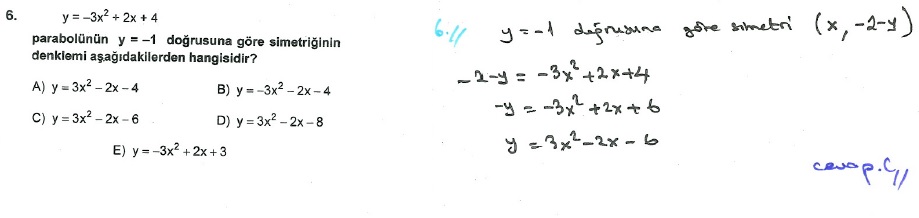 6. y = –3x² + 2x + 4
parabolünün y = –1 doğrusuna göre simetriğinin
denklemi aşağıdakilerden hangisidir?
A) y = 3x² – 2x – 4 B) y = –3x² – 2x – 4
C) y = 3x² – 2x – 6 D) y = 3x² – 2x – 8
E) y = –3x² + 2x + 3
6.// y = -1 doğrusuna göre simetri (x, -2-y)
-2-y = -3x² + 2x + 4
-y = -3x² + 2x + 6
y = 3x² - 2x - 6
cevap. C//